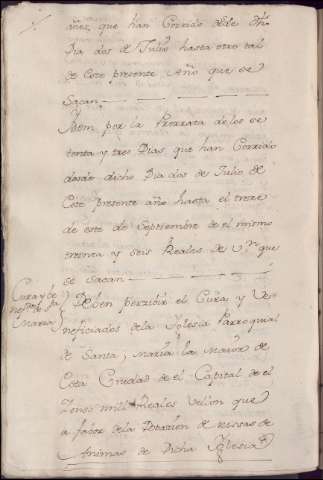 años, que han Corrido desde dho
Dia dos de Julio hasta otro tal
de Este presente Año que se
Sacan
Item por la Prorrata de los se
tenta y tres Dias que han Corrido
desde dicho Dia dos de Julio de
Este presente año hasta el treze
de este de Septiembre de el mismo
treinta y seis Reales de Vn que
se sacan
Cura y Be
nefdos de Sta
Maria
Deben percibir el Cura y Ve
neficiados de la Iglesia Parroquial
de Santa, Maria la Maior de
Esta Ciudad de el Capital de el
Zenso mil Reales Vellon que
a favor de la Dotazion de missas de
Animas de Dicha Iglesia